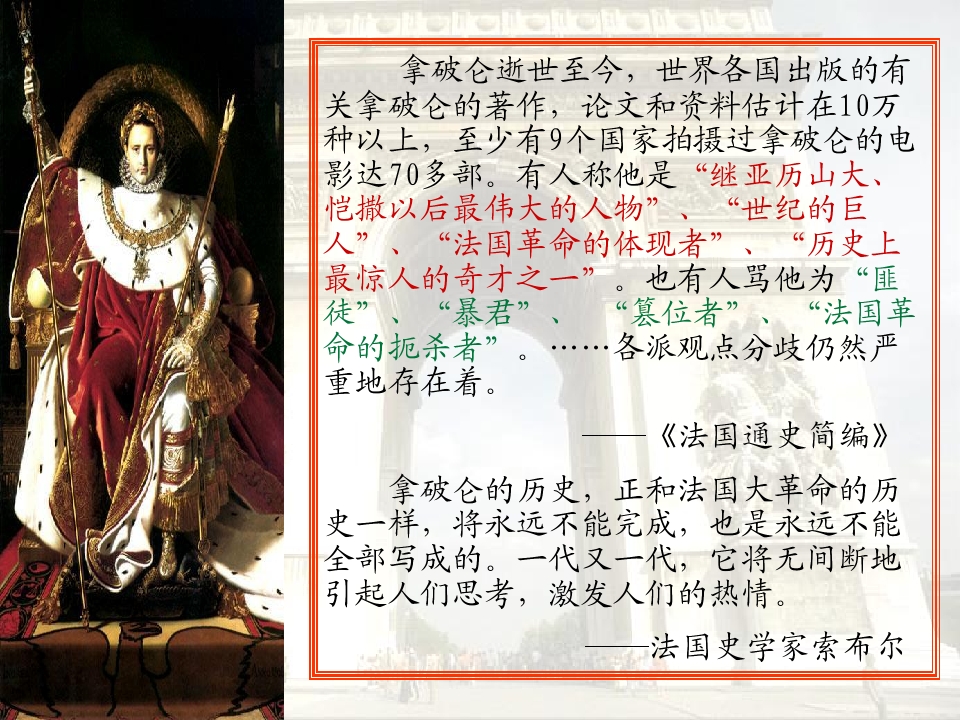 拿破仑逝世至今，世界各国出版的有
关拿破仑的著作，论文和资料估计在10万
种以上，至少有9个国家拍摄过拿破仑的电
影达70多部。有人称他是“继亚历山大、
恺撒以后最伟大的人物”、“世纪的巨
人”、“法国革命的体现者”、“历史上
最惊人的奇才之一”。也有人骂他为“匪
徒”、“暴君”、“篡位者”、“法国革
命的扼杀者”。……各派观点分歧仍然严
重地存在着。
——《法国通史简编》
拿破仑的历史，正和法国大革命的历
史一样，将永远不能完成，也是永远不能
全部写成的。一代又一代，它将无间断地
引起人们思考，激发人们的热情。
——法国史学家索布尔